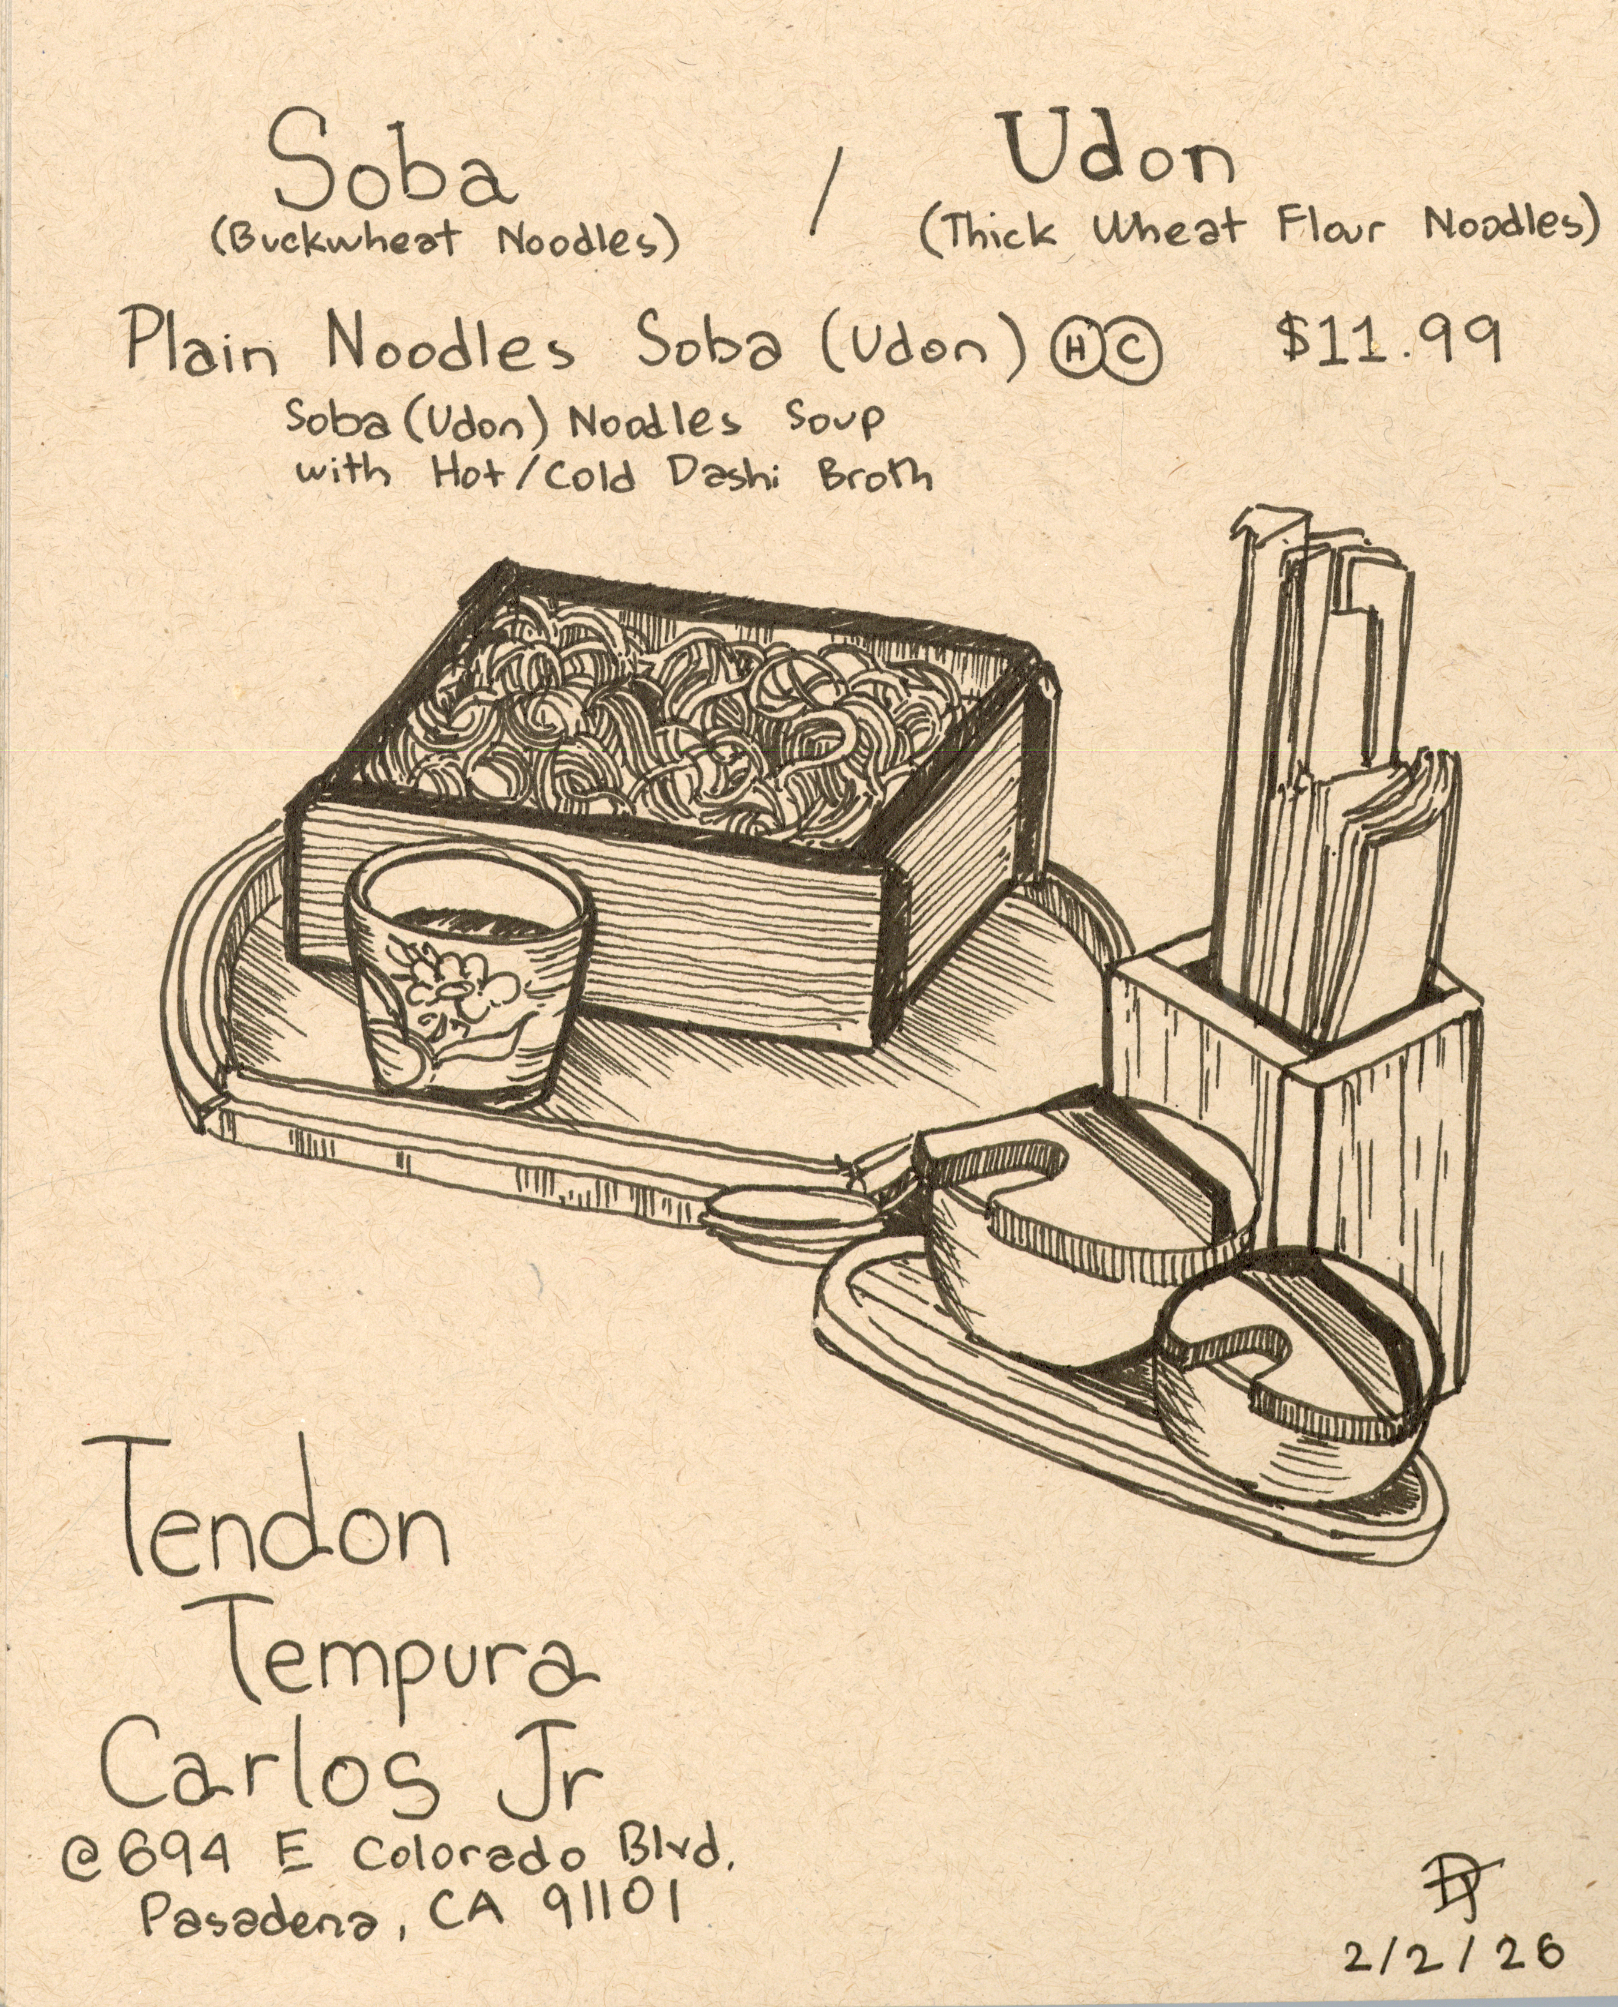 Soba / Udon
(Buckwheat Noodles) (Thick Wheat Flour Noodles)
Plain Noodles Soba (Udon) H C $11.99
Soba (Udon) Noodles Soup
with Hot/Cold Dashi Broth
Tendon
Tempura
Carlos Jr
@ 694 E Colorado Blvd.
Pasadena, CA 91101
DT
2/2/26